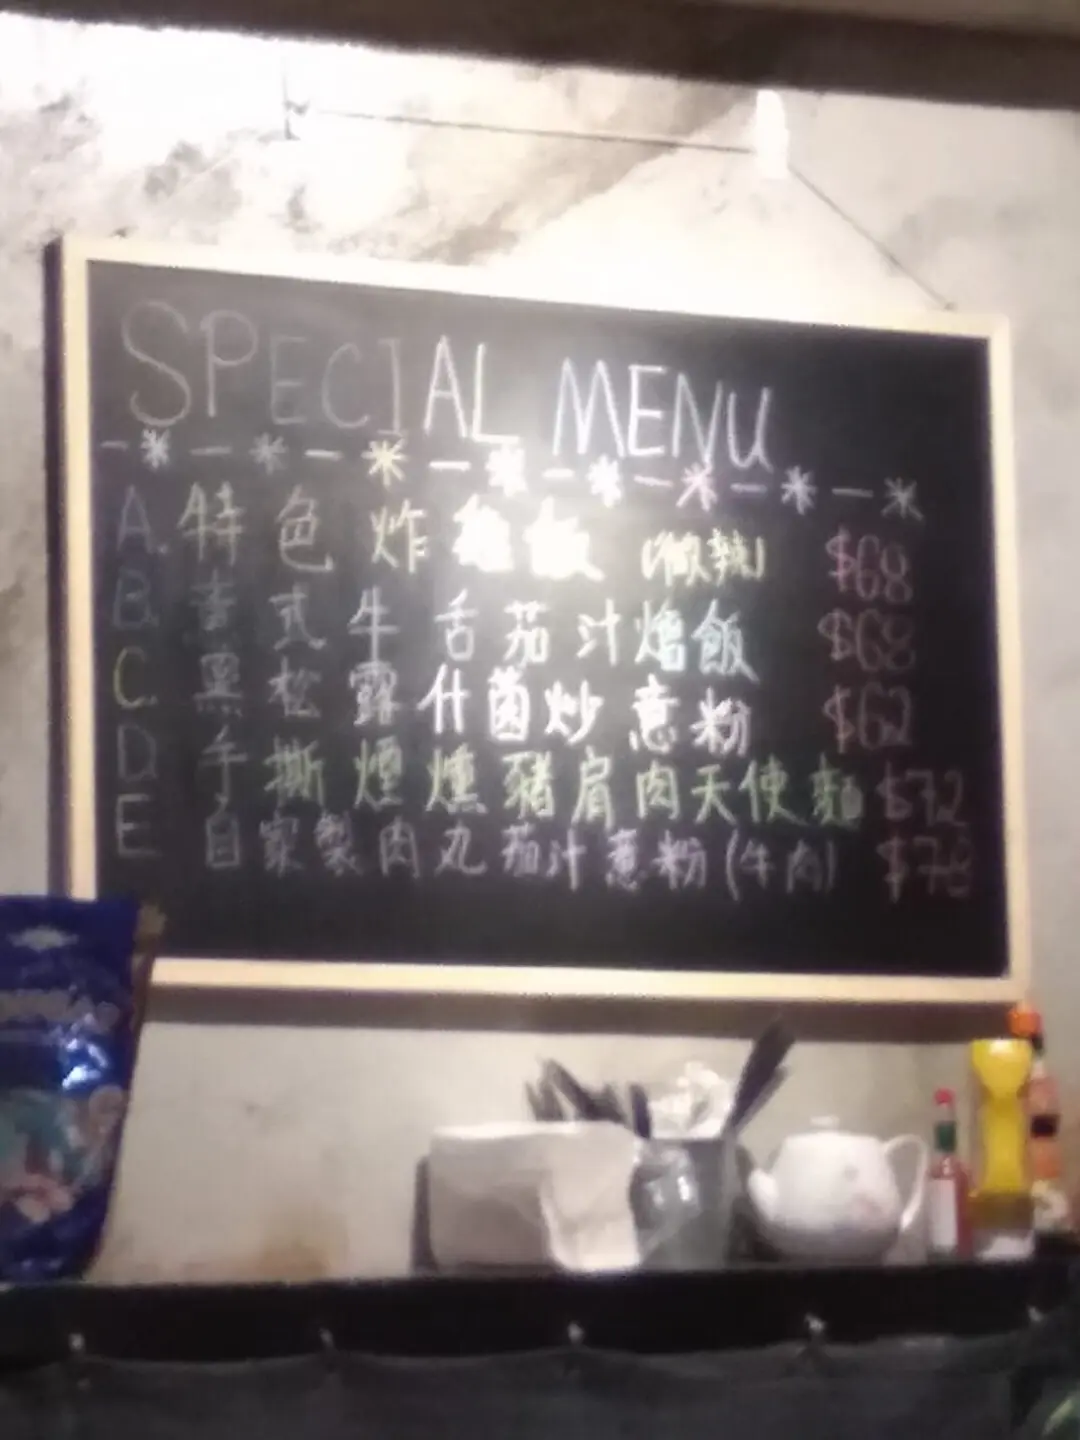 SPECIAL MENU
A. 特色炸 (微辣) $68
B. 式牛舌茄汁燴飯 $68
C. 黑松露什菌炒意粉 $62
D. 手撕煙燻豬肩肉天使麵 $72
E 自家製肉丸茄汁意粉(牛肉) $78